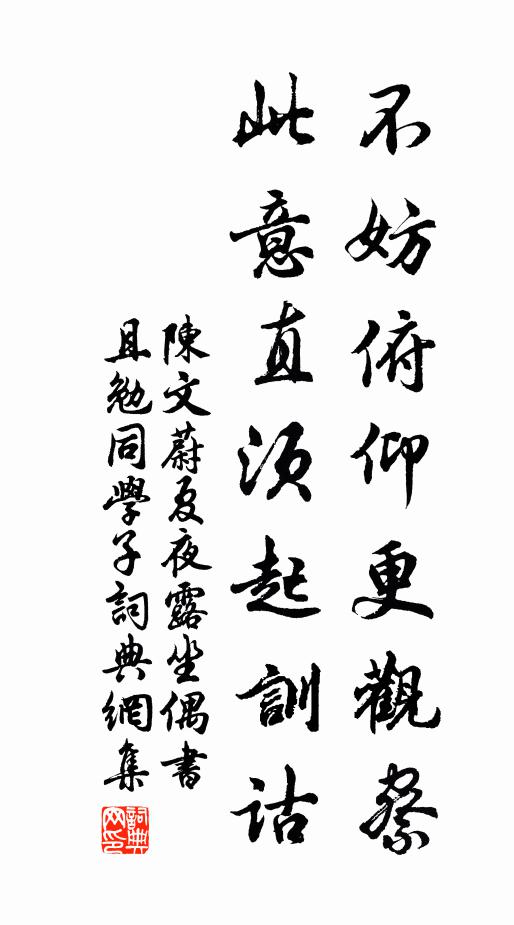 不妨俯仰更觀察
此意直須起訓詁
陳文蔚夏夜露坐偶書
且勉同學子詞典網集
詞典
网印